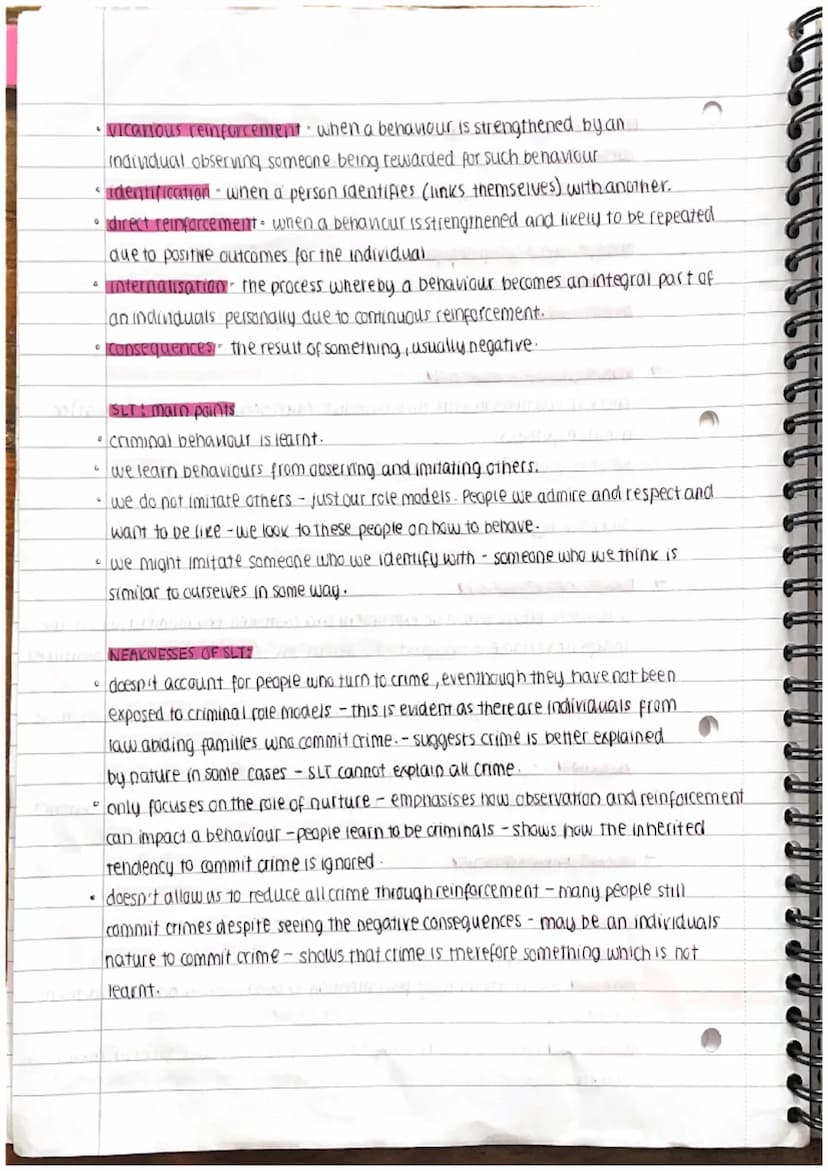 • vicarious reinforcement - when a behaviour is strengthened by an
individual observing someone being rewarded for such behaviour
• identification - when a person identifies (links themselves) with another.
• direct reinforcement - when a behaviour is strengthened and likely to be repeated
due to positive outcomes for the individual
• internalisation - the process whereby a behaviour becomes an integral part of
an individuals personally due to continuous reinforcement.
• consequences - the result of something, usually negative.
SLT: main points
• criminal behaviour is learnt.
• we learn behaviours from observing and imitating others.
• we do not imitate others - just our role models. People we admire and respect and
want to be like - we look to these people on how to behave.
• we might imitate someone who we identify with - someone who we think is
similar to ourselves in some way.
WEAKNESSES OF SLT:
• doesn't account for people who turn to crime, eventhough they have not been
exposed to criminal role models - this is evident as there are individuals from
law abiding families who commit crime. - suggests crime is better explained
by nature in some cases - SLT cannot explain all crime.
• only focuses on the role of nurture - emphasises how observation and reinforcement
can impact a behaviour - people learn to be criminals - shows how the inherited
tendency to commit crime is ignored.
• doesn't allow us to reduce all crime through reinforcement - many people still
commit crimes despite seeing the negative consequences - may be an individuals
nature to commit crime - shows that crime is therefore something which is not
learnt.